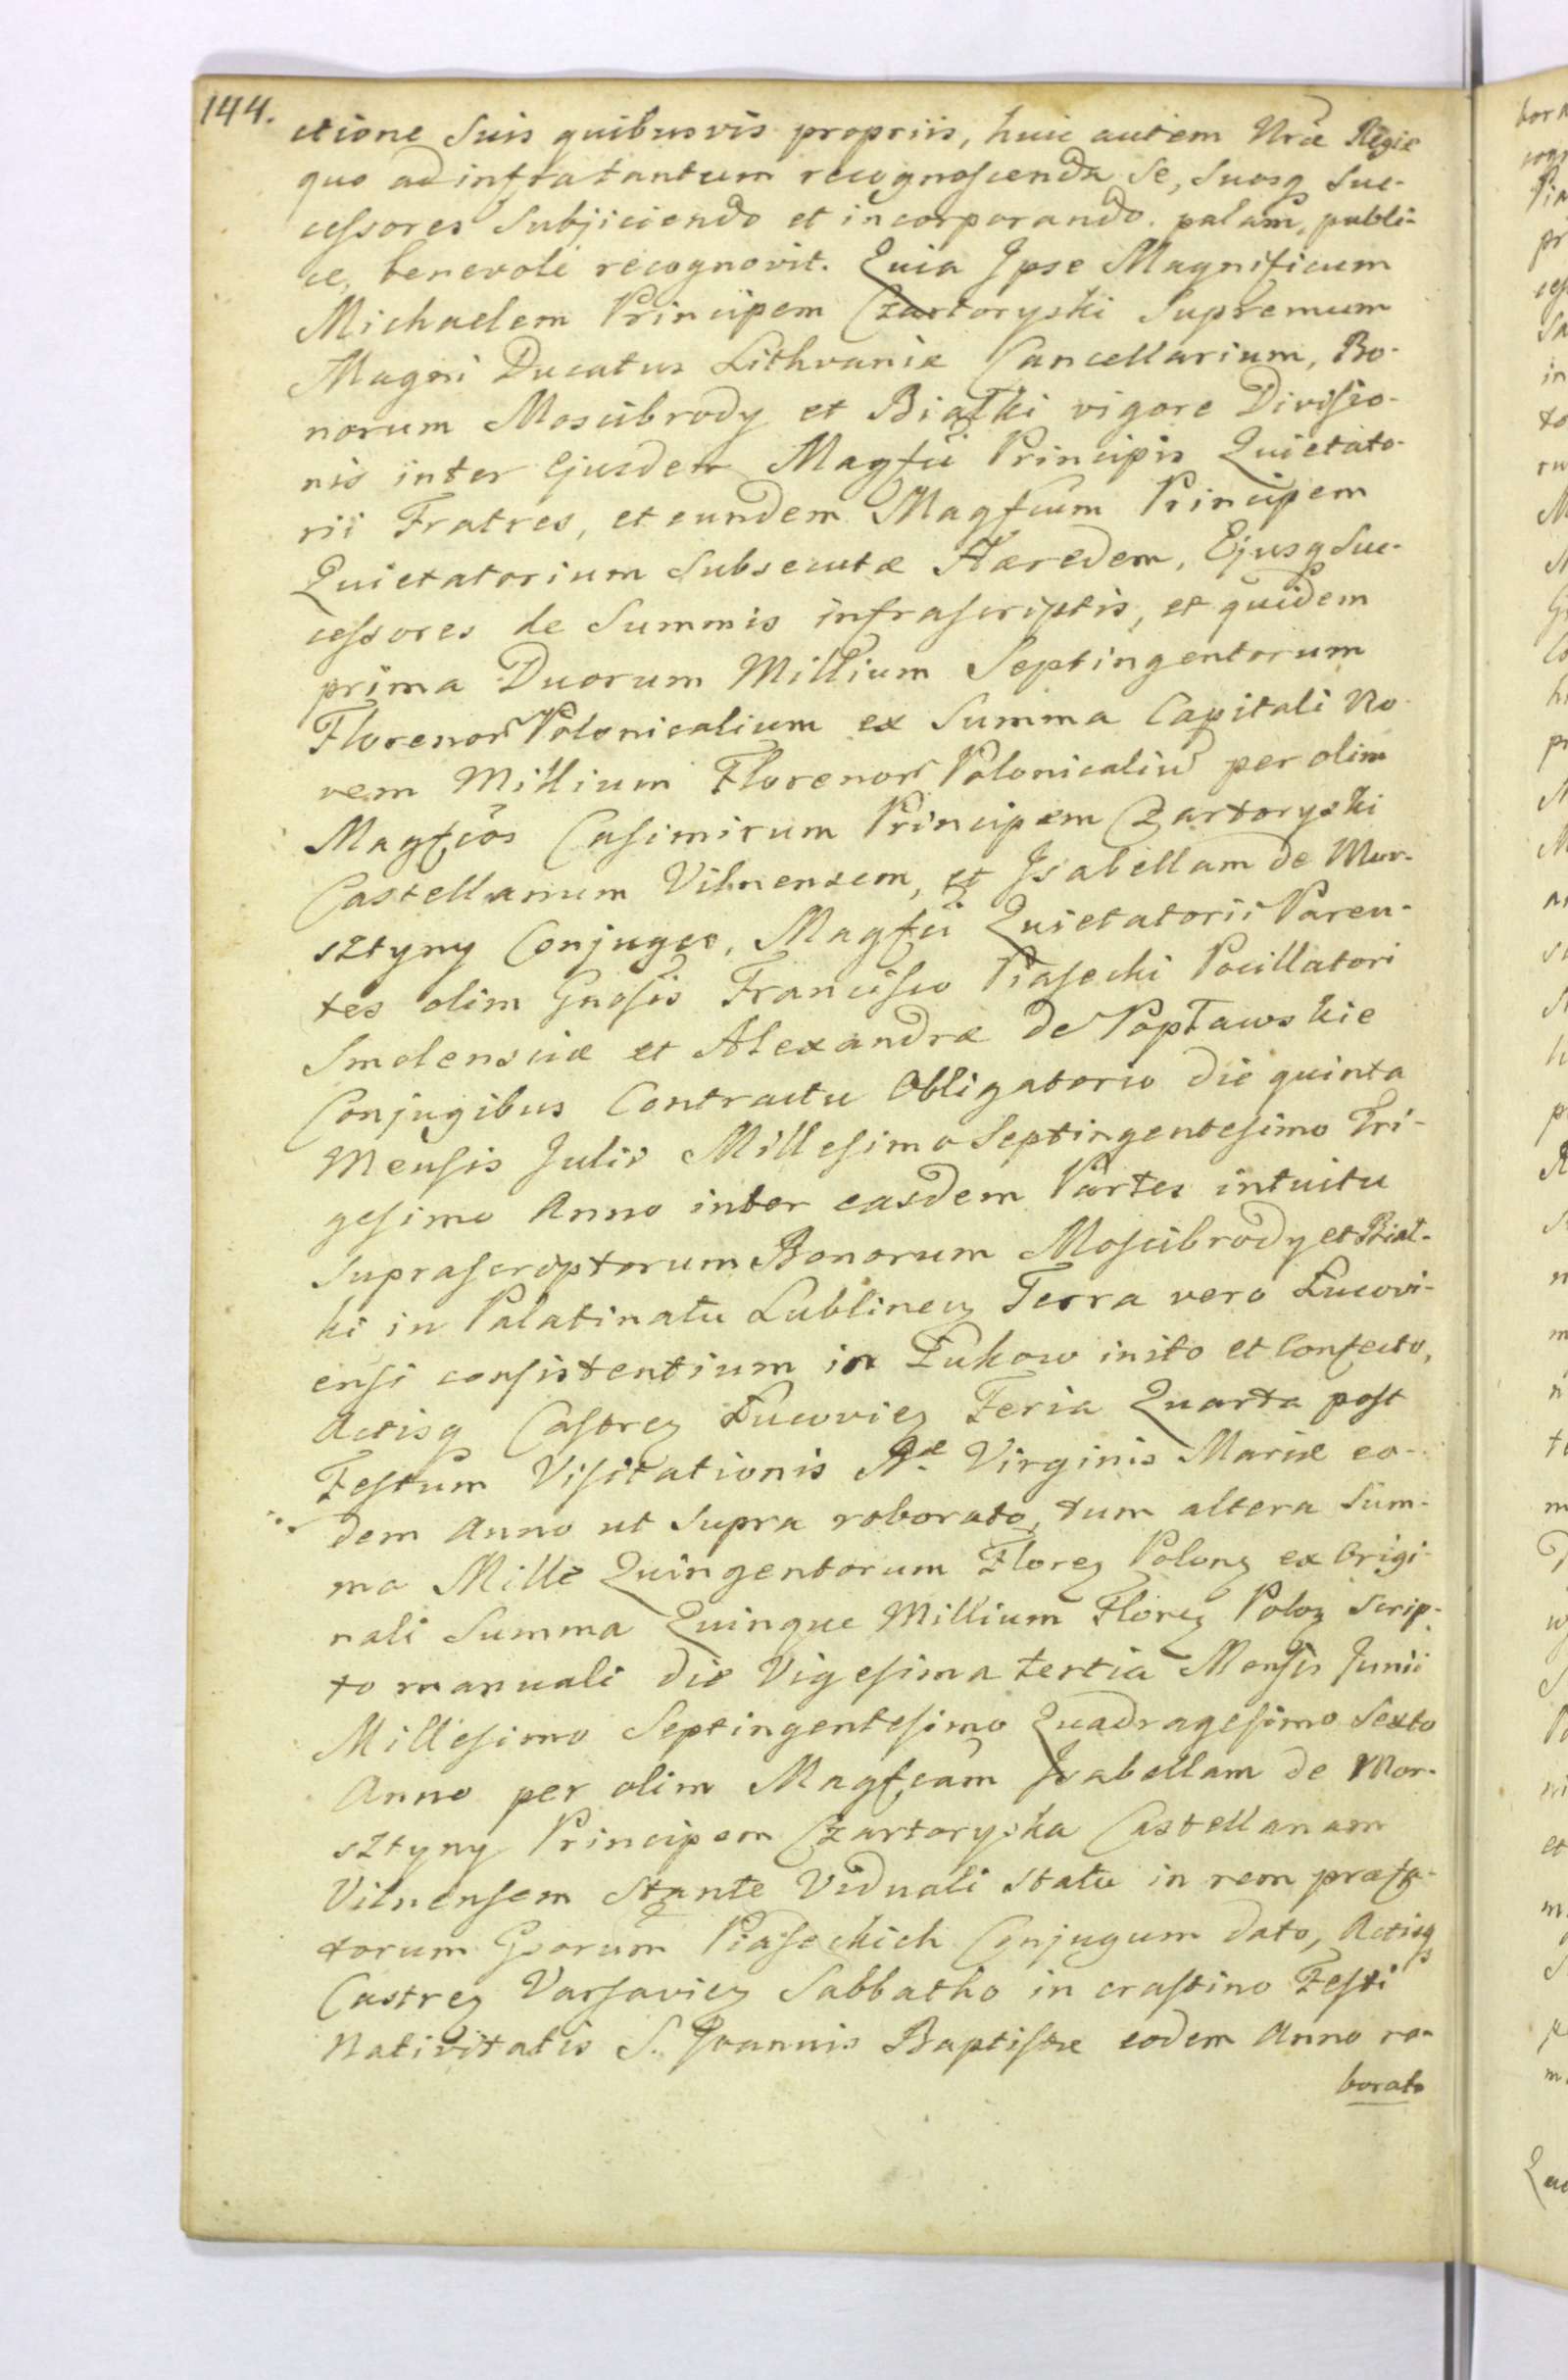 144.
ctione Suis quibusvis propriis, huic autem Nræ Regiæ
quo ad infratantum recognoscenda Se, Suosq Suc-
cessores Subjiciendo et incorporando. palam, publi-
ce, benevole recognovit. Quia Ipse Magnificum
Michaelem Principem Czartoryski Supremum
Magni Ducatus Lithvaniæ Cancellarium, Bo-
norum Moscibrody et Białki vigore Divisio-
nis inter Ejusdem Magfci Principis Quietato-
rii Fratres, et eundem Magfcum Principem
Quietatorium Subsecutæ Hæredem, Ejusq Suc-
cessores de Summis infrascriptis, et quidem
prima Duorum Millium Septingentorum
Florenor Polonicalium ex Summa Capitali No-
vem Millium Florenor Polonicaliū per olim
Magfcos Casimirum Principem Czartoryski
Castellanum Vilnensem, et Isabellam de Mor-
sztyny Conjuges, Magfci Quietatorii Paren-
tes olim Gnosis Francisco Piasecki Pocillatori
Smolensciæ et Alexandræ de Popławskie
Conjugibus Contractu Obligatorio die quinta
Mensis Julii Millesimo Septingentesimo Tri-
gesimo Anno inter easdem Partes intuitu
Suprascriptorum Bonorum Moscibrody et Biał-
ki in Palatinatu Lublineñ Terra vero Łucovi-
ensi consistentium in Łukow inito et confecto,
Actisq Castreñ Łucovieñ Feria Quarta post
Festum Visitationis Bæ Virginis Mariæ eo-
dem Anno ut Supra roborato, tum altera Sum-
ma Mille Quingentorum Floreñ Poloñ ex Origi-
nali Summa Quinque Millium Floreñ Poloñ Scrip-
to manuali die Vigesima tertia Mensis Junii
Millesimo Septingentesimo Quadragesimo Sexto
Anno per olim Magfcam Isabellam de Mor-
sztyny Principem Czartoryska Castellanam
Vilnensem Stante Viduali Statu in rem præfa-
torum Gsorum Piaseckich Conjugum dato, Actisq
Castreñ Varsavieñ Sabbatho in crastino Festi
Nativitatis S. Joannis Baptistæ eodem Anno ro-
borato